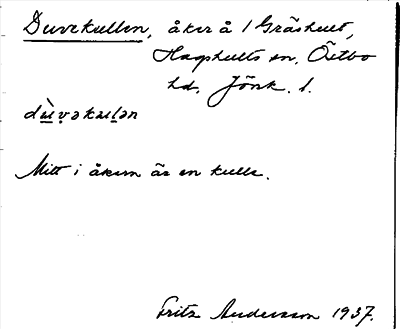 Duvekullen, åker å 1 Gräshult,
Hagshults sn, Östbo
hd, Jönk. l.
dùvəkulən
Mitt i åkern är en kulle.
Fritz Andersson 1937.